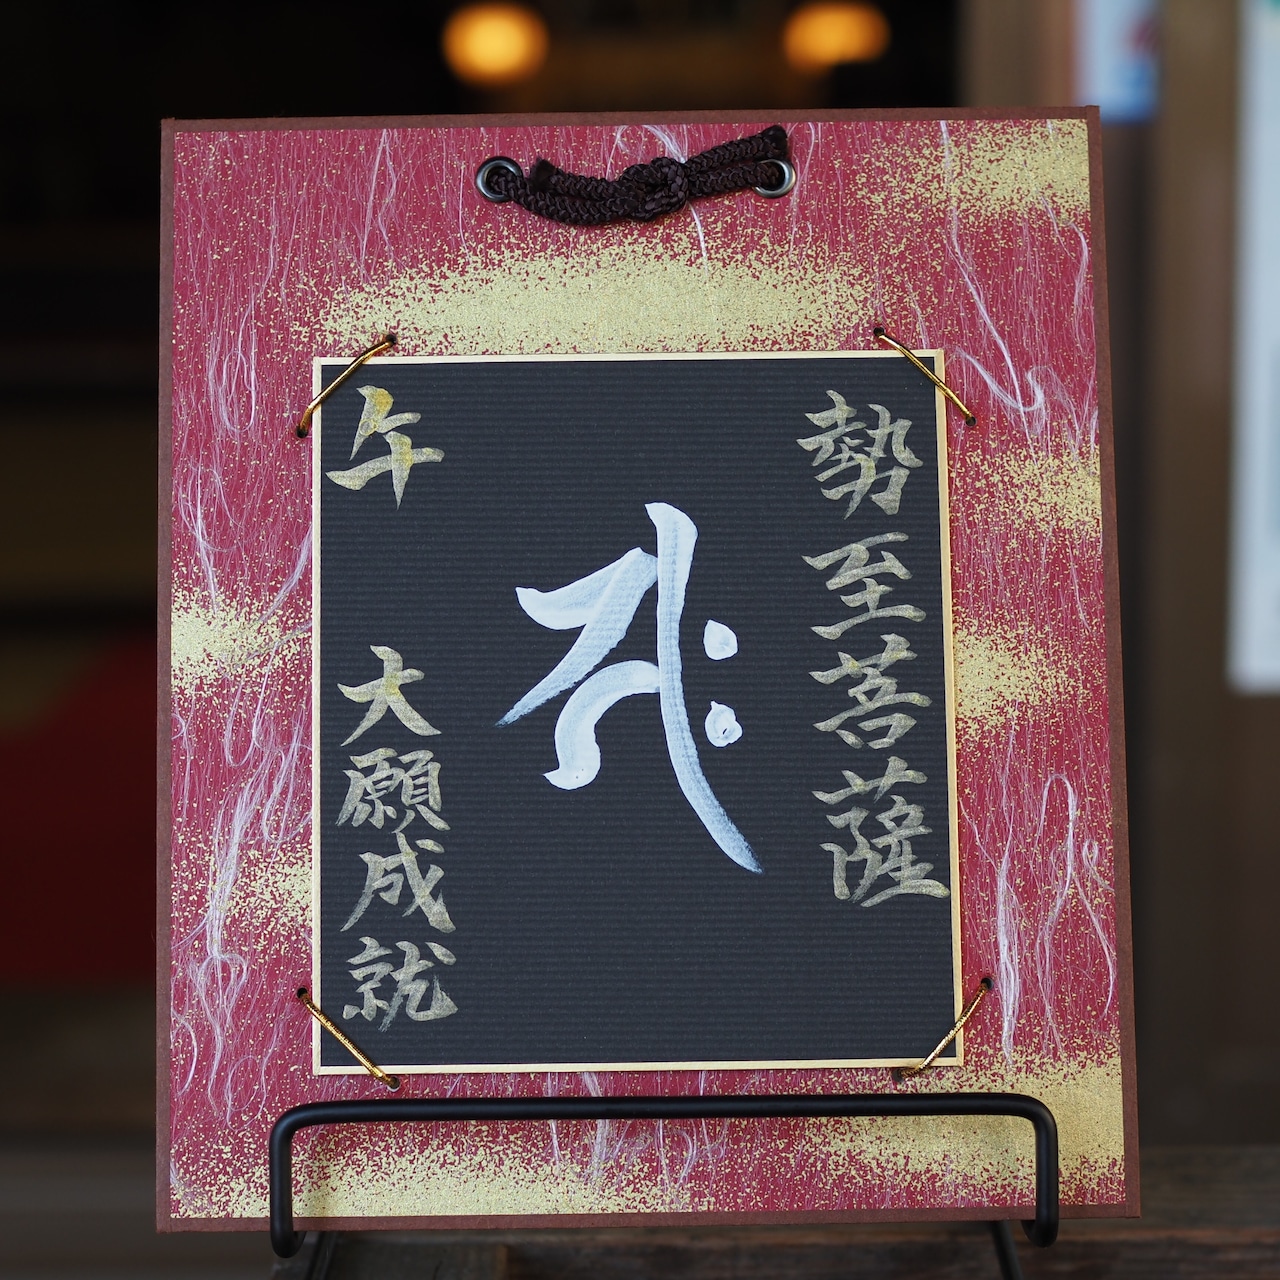 勢至菩薩
सः
午 大願成就